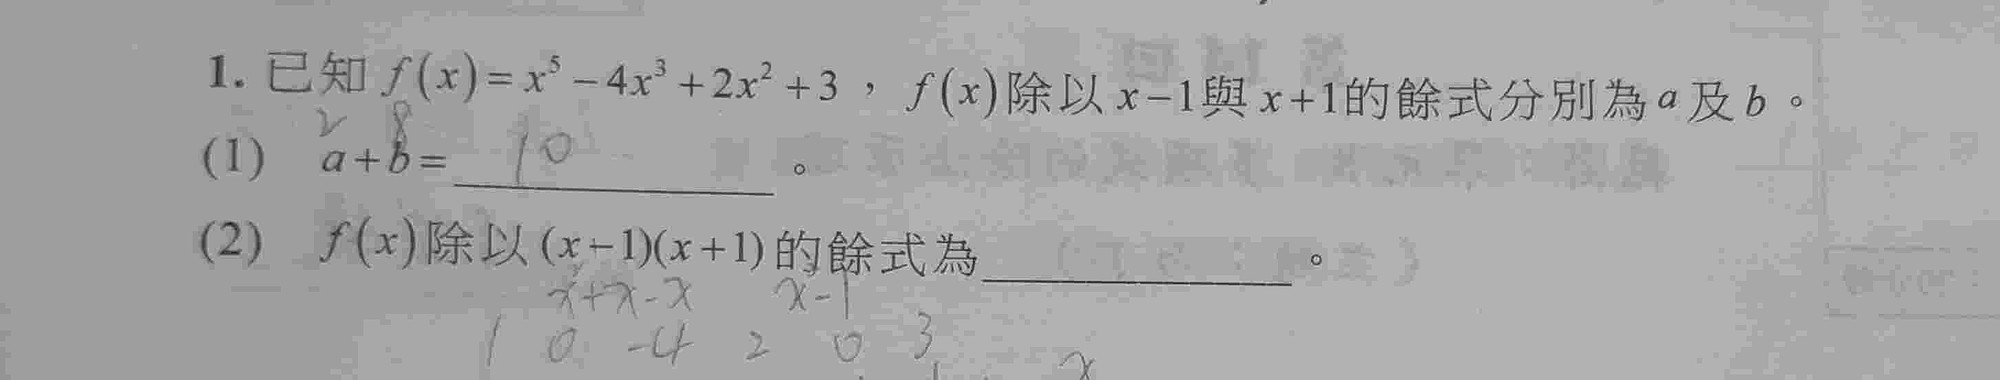 1. 已知 f(x)=x⁵−4x³+2x²+3，f(x)除以 x−1與 x+1的餘式分別為 a 及 b。
2 8
(1) a+b= 10 。
(2) f(x)除以(x−1)(x+1)的餘式為 。
x+x-x x-1
1 0 -4 2 0 3
x